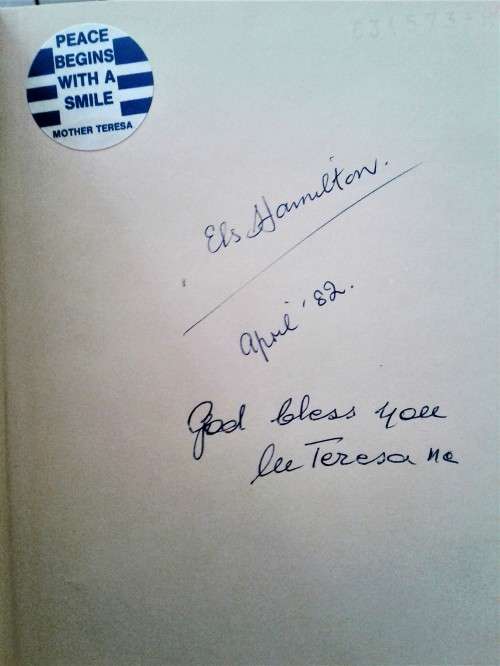 PEACE
BEGINS
WITH A
SMILE
MOTHER TERESA
Els Hamilton.
April '82.
God bless you
lu Teresa mc